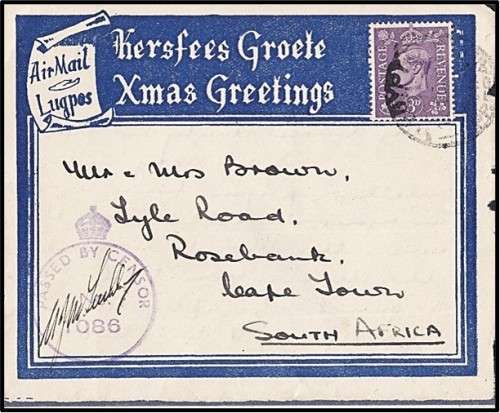 Air Mail
Lugpos
Kersfees Groete
Xmas Greetings
POSTAGE REVENUE
3D
Mr & Mrs Brown,
Lyle Road,
Rosebank,
Cape Town
SOUTH AFRICA
PASSED BY CENSOR
086